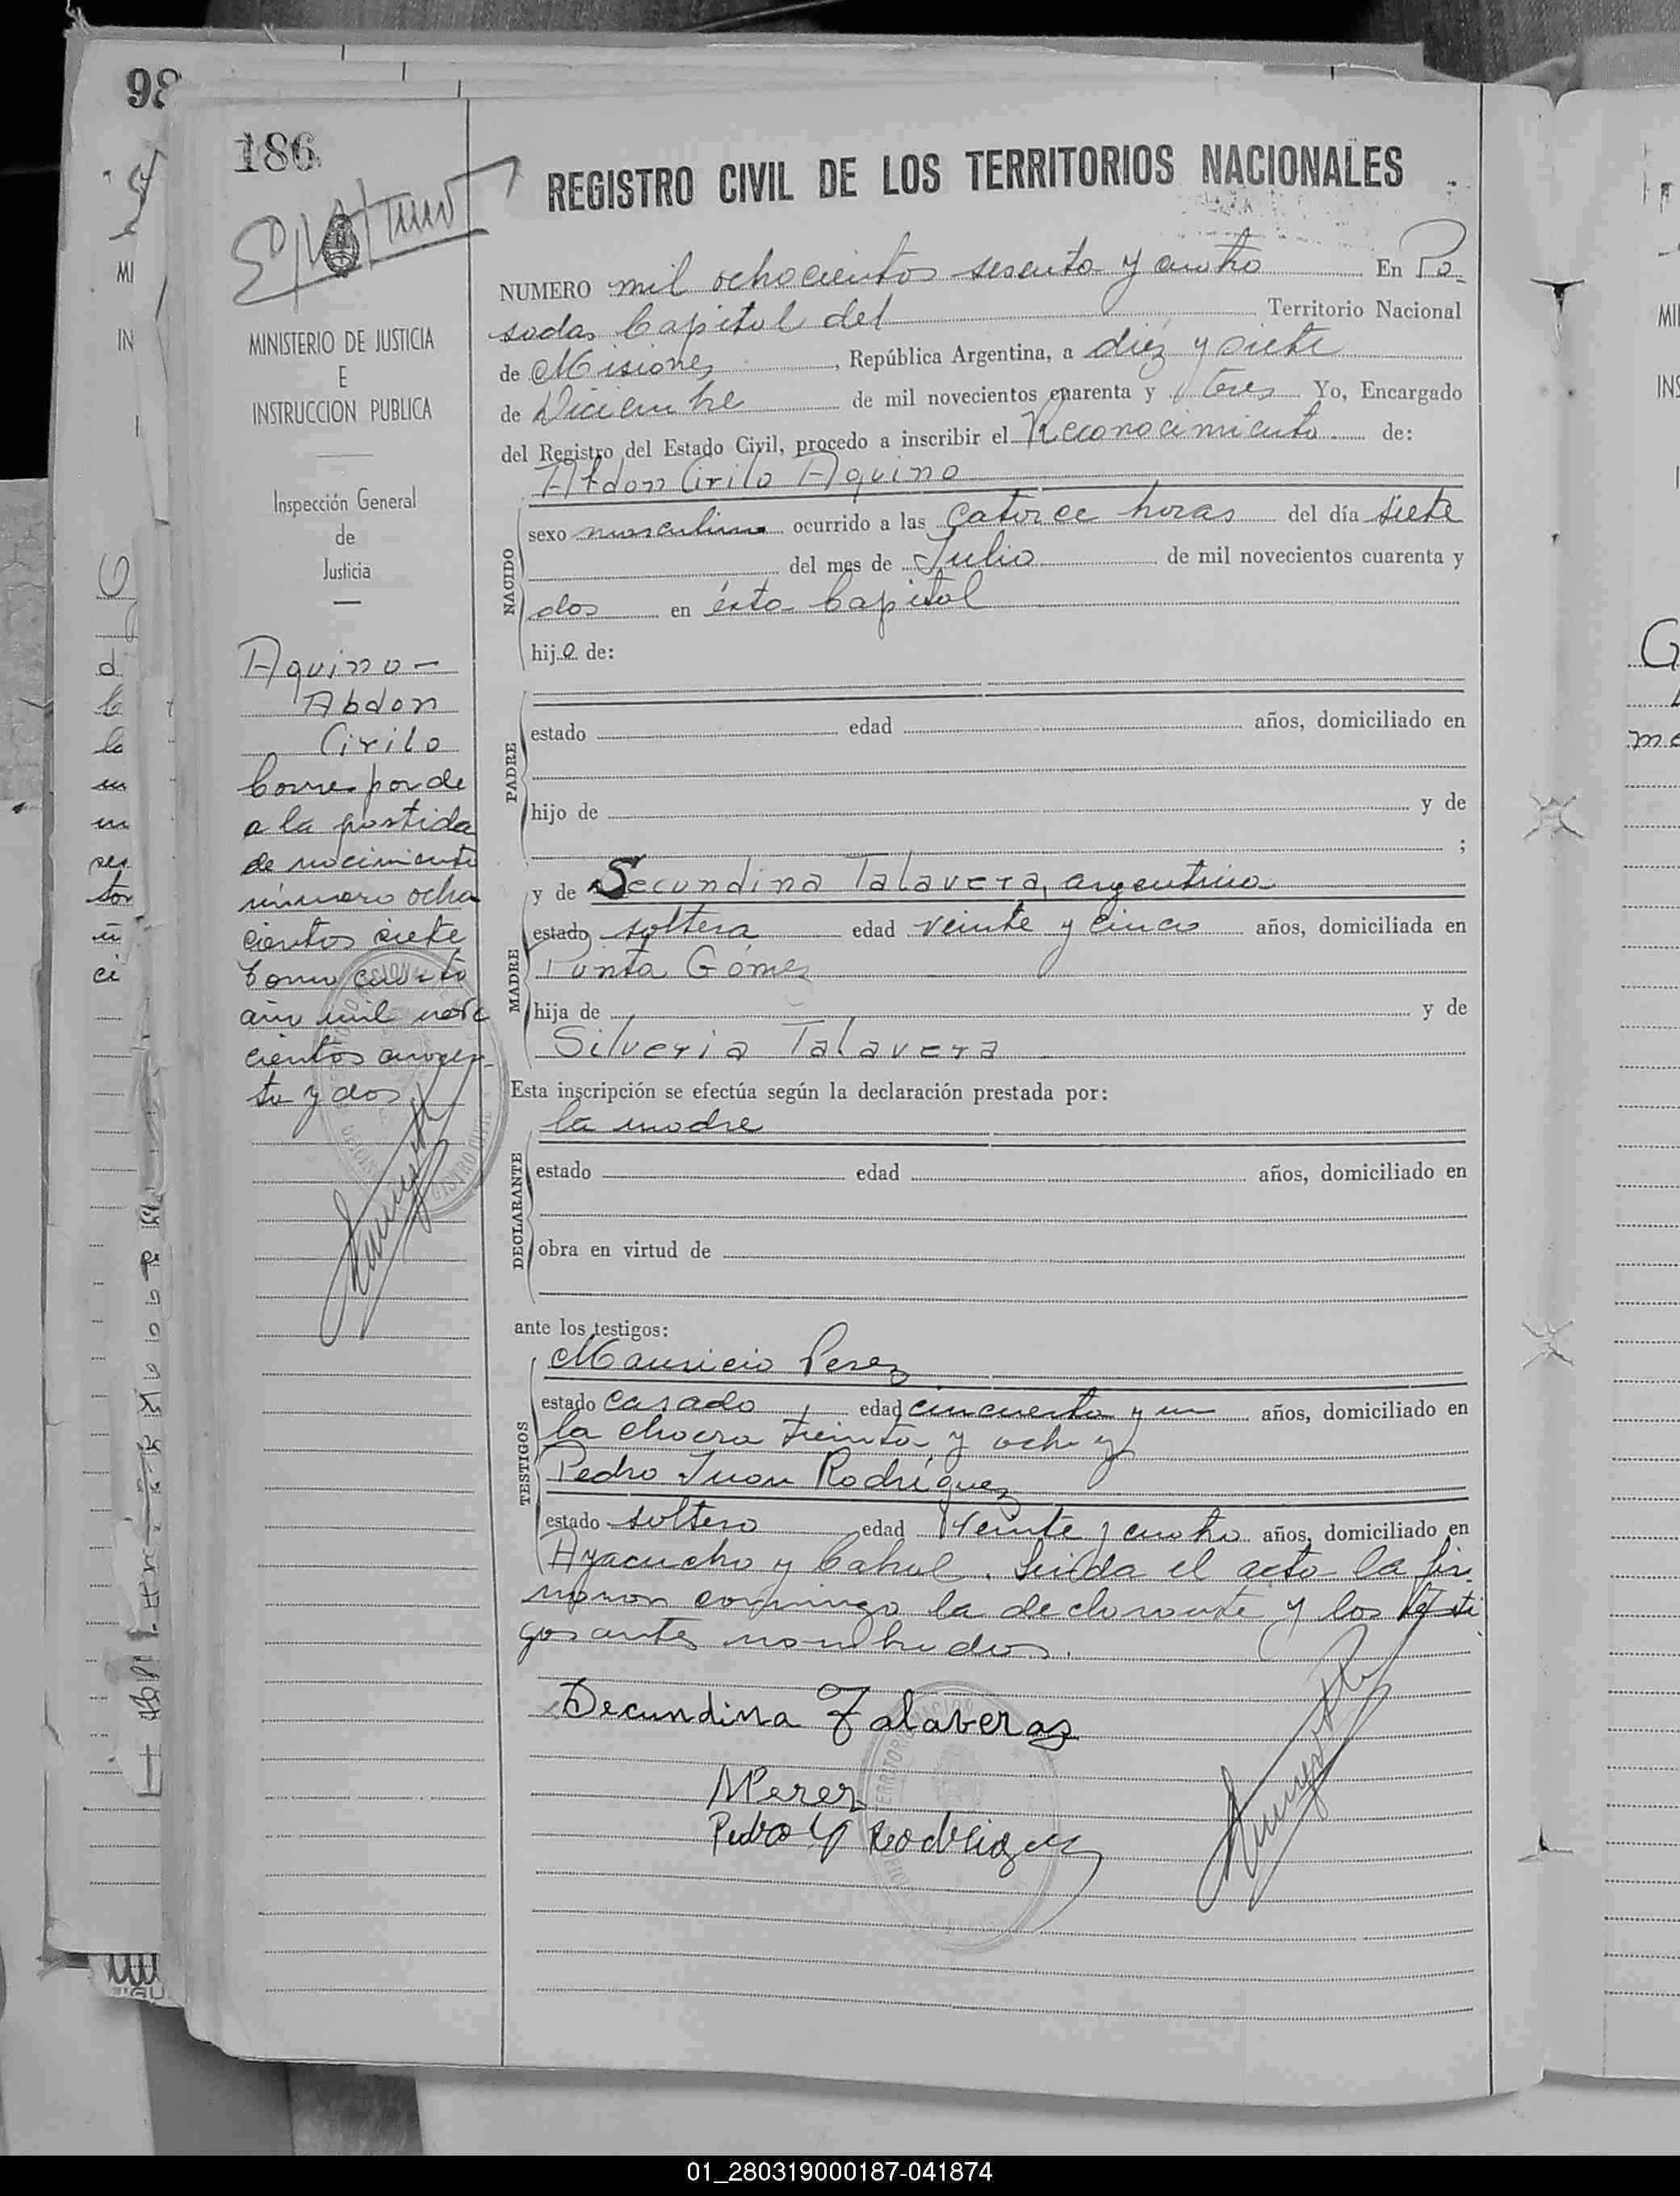 98
186
REGISTRO CIVIL DE LOS TERRITORIOS NACIONALES
NUMERO mil ochocientos sesenta y cuatro En Po-
sadas Capital del Territorio Nacional
de Misiones, República Argentina, a diez y siete
de Diciembre de mil novecientos cuarenta y tres Yo, Encargado
del Registro del Estado Civil, procedo a inscribir el Reconocimiento de:
Abdon Cirilo Aquino
NACIDO
sexo masculino ocurrido a las catorce horas del día siete
del mes de Julio de mil novecientos cuarenta y
dos en ésta Capital
hijo de:
PADRE
estado edad años, domiciliado en
hijo de y de
;
MADRE
y de Secundina Talavera, argentina
estado soltera edad veinte y cinco años, domiciliada en
Punta Gómez
hija de y de
Silveria Talavera
Esta inscripción se efectúa según la declaración prestada por:
la madre
DECLARANTE
estado edad años, domiciliado en
obra en virtud de
ante los testigos:
TESTIGOS
Mauricio Perez
estado casado edad cincuenta y un años, domiciliado en
la chacra treinta y ocho y
Pedro Juan Rodríguez
estado soltero edad veinte y cuatro años, domiciliado en
Ayacucho y Cabral. Leída el acta la fir-
maron conmigo la declarante y los testi
gos antes nombrados.
Secundina Talaveraz
MPerez
Pedro J Rodriguez
MINISTERIO DE JUSTICIA
E
INSTRUCCION PUBLICA
Inspección General
de
Justicia
Aquino-
Abdon
Cirilo
Corresponde
a la partida
de nacimiento
número ocho
cientos siete
tomo cuarto
año mil nove
cientos cuaren-
ta y dos
01_280319000187-041874